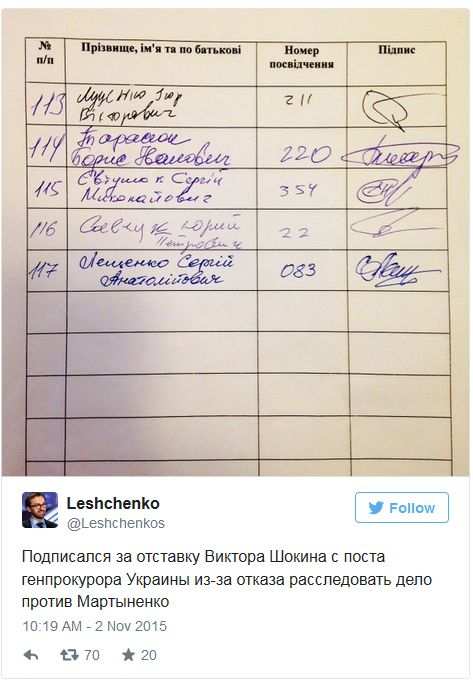 № п/п Прізвище, ім'я та по батькові Номер посвідчення Підпис
113 Ігор
Вікторович 211
114 Тарасюк
Борис Іванович 220
115 Євтушок Сергій
Миколайович 354
116 Савчук Юрій
Петрович 22
117 Лещенко Сергій
Анатолійович 083
Leshchenko
@Leshchenkos
Follow
Подписался за отставку Виктора Шокина с поста
генпрокурора Украины из-за отказа расследовать дело
против Мартыненко
10:19 AM - 2 Nov 2015
70 20